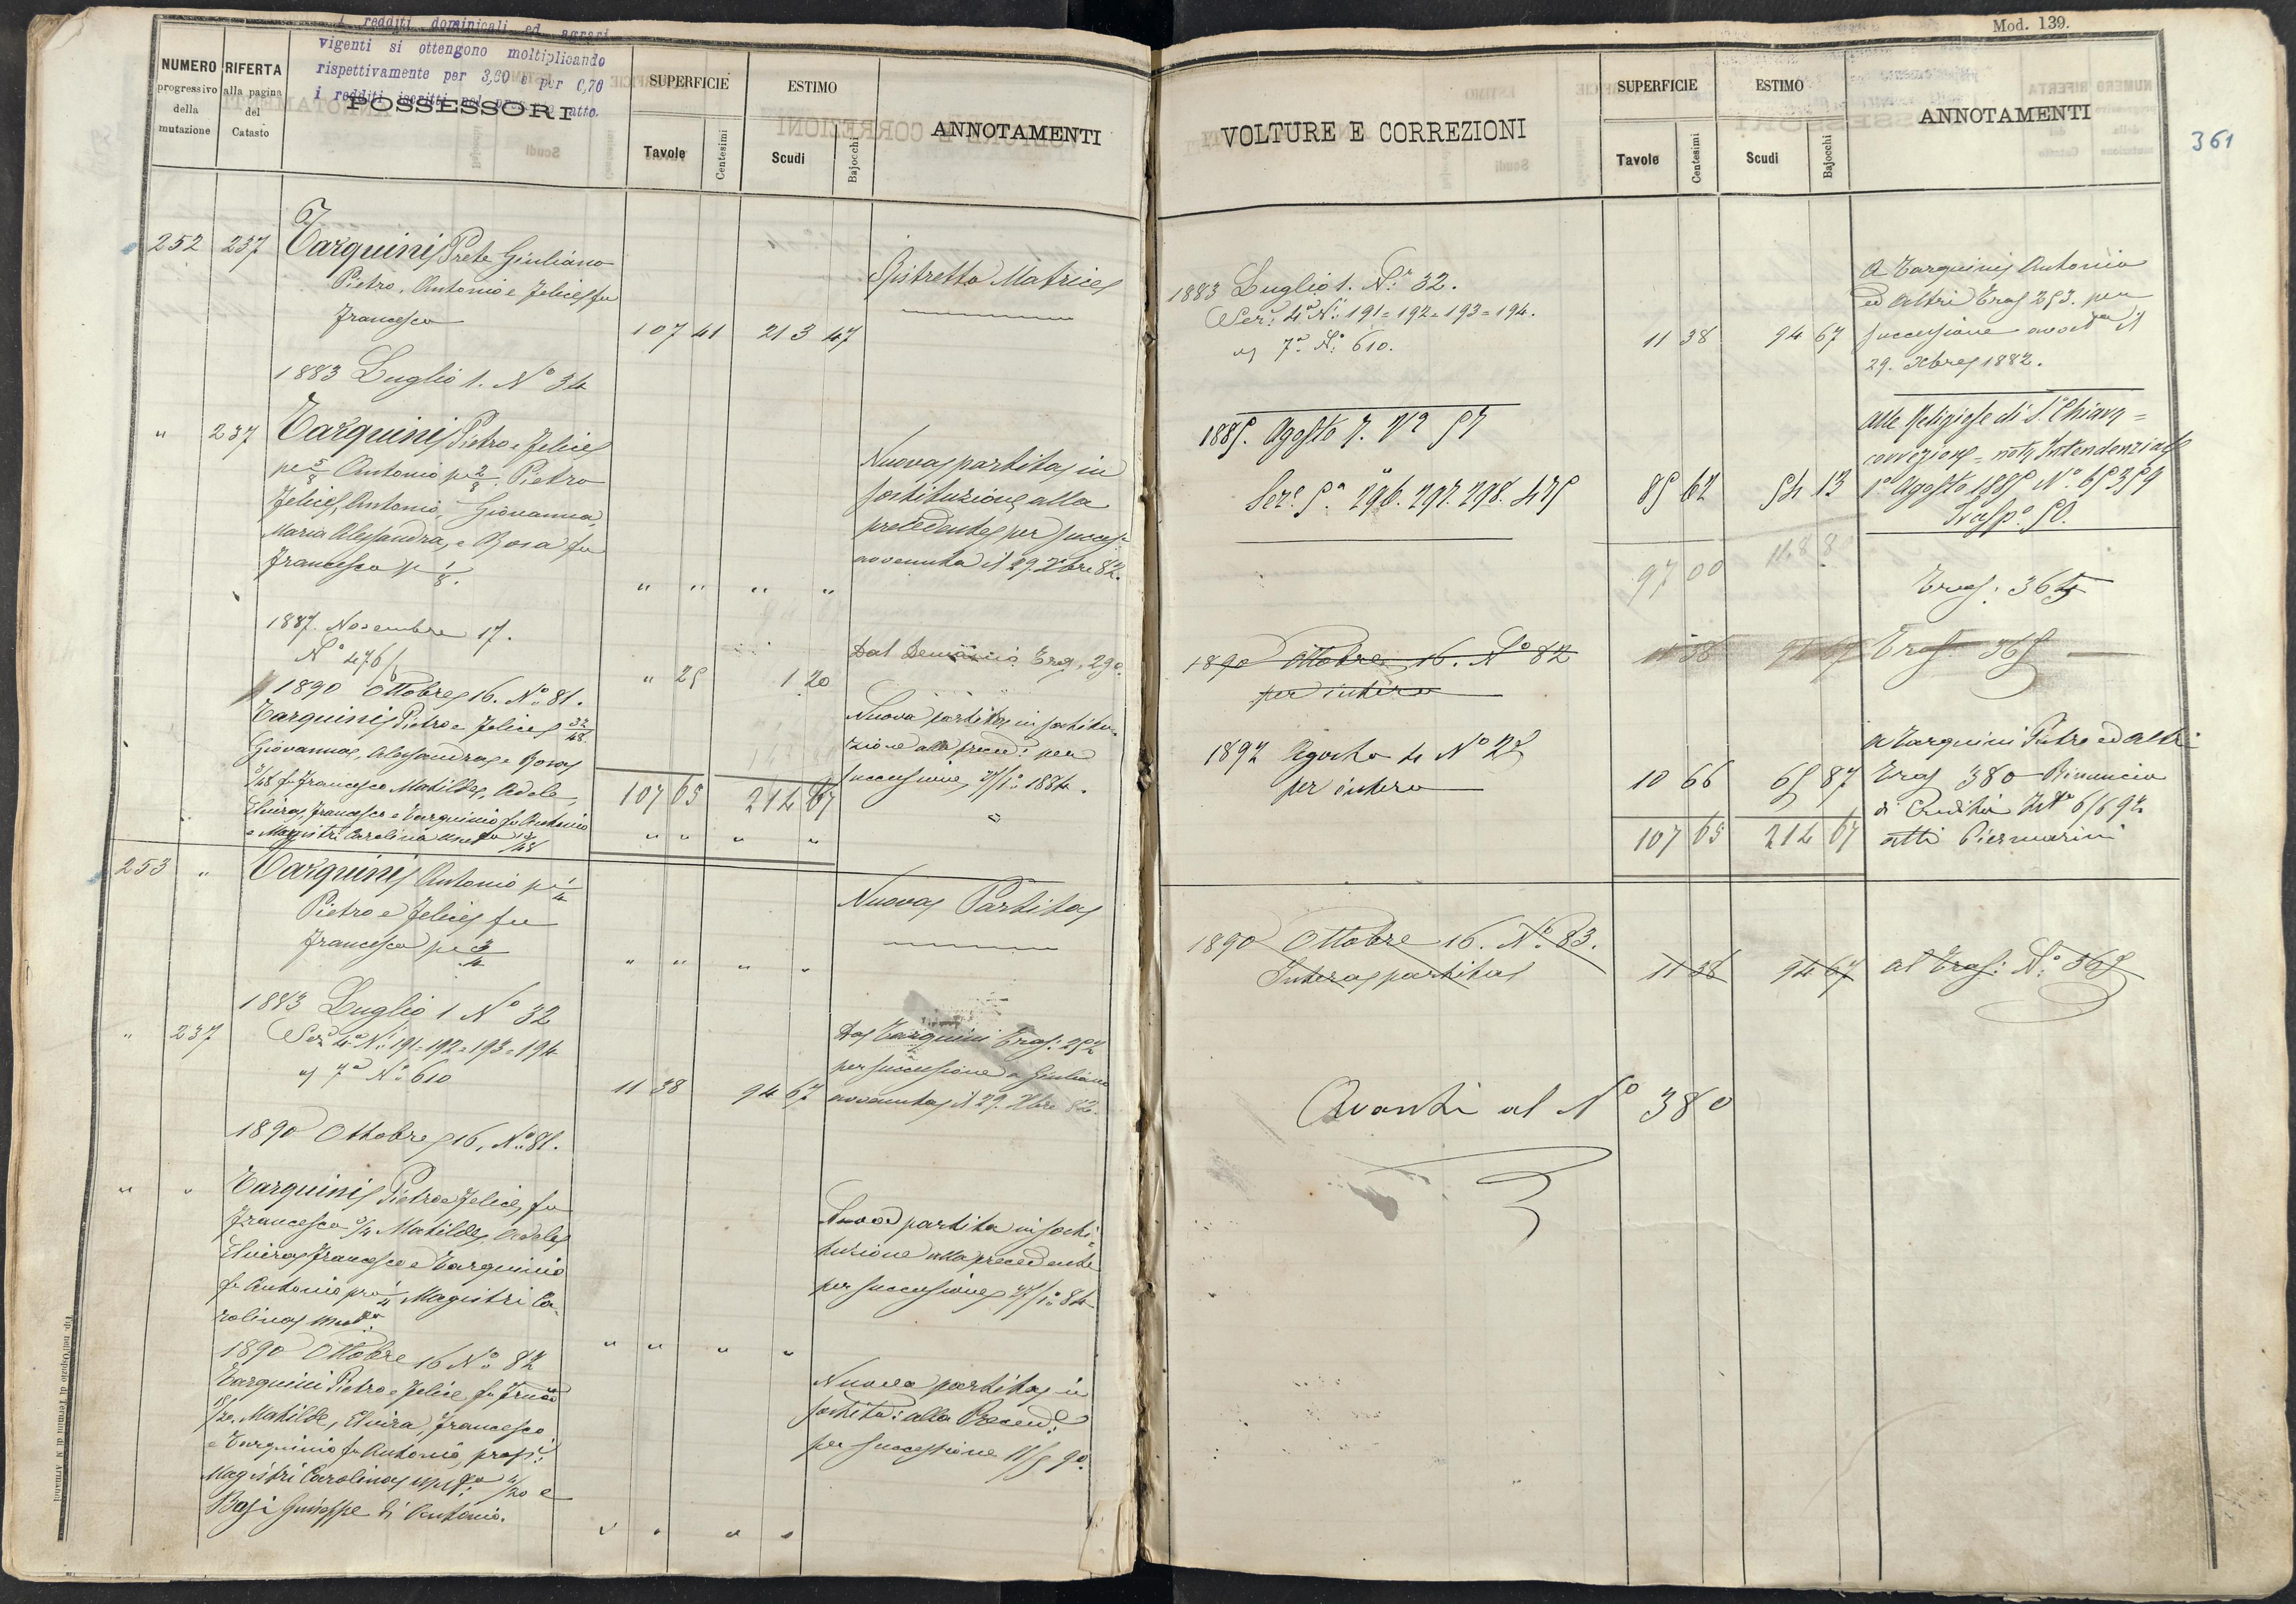 I redditi dominicali ed agrari
vigenti si ottengono moltiplicando
rispettivamente per 3,60 e per 0,70
i redditi iscritti nel presente atto.
NUMERO progressivo della mutazione
RIFERTA alla pagina del Catasto
POSSESSORI
SUPERFICIE
Tavole Centesimi
ESTIMO
Scudi Bajocchi
ANNOTAMENTI
252 237 Tarquini Prete Giuliano
Pietro, Antonio e Felice fu
Francesco 107 41 213 47
Ristretto Matrice
1883 Luglio 1. Nº 34
" 237 Tarquini Pietro e Felice
pe 5/8 Antonio pe 2/8. Pietro
Felice, Antonio, Giovanna,
Maria Alessandra, e Rosa fu
Francesco p 1/8. " " " "
Nuova partita in
sostituzione alla
precedente per success
avvenuta il 29. Xbre 82.
1887. Novembre 17.
Nº 476/1 " 25 1 20
Dal Demanio Tras. 290
1890 Ottobre 16. Nº 81.
Tarquini Pietro e Felice 32/48
Giovanna, Alessandra e Rosa
3/48 fu Francesco Matilde, Adele,
Elvira, Francesco e Tarquinio fu Antonio
e Magistri Carolina usuf 13/48
107 65 214 67
" " " "
Nuova partita in sostitu-
zione alla preced: per
successione 1884.
253 " Tarquini Antonio pe 1/4
Pietro e Felice fu
Francesco pe 3/4 " " " "
Nuova Partita
1883 Luglio 1 Nº 32
" 237 Sez 4ª Ni 191=192=193=194
" 7ª Nº 610 11 38 94 67
Da Tarquini Tras: 252
per successione a Giuliano
avvenuta il 29. Xbre 82.
1890 Ottobre 16, Nº 81.
" " Tarquini Pietro e Felice fu
Francesco 3/4 Matilde, Adele
Elvira, Francesco e Tarquinio
fu Antonio pro 1/4, Magistri Ca-
rolina usuf.
" " " "
Nuova partita in sosti=
tuzione alla precedente
per successione 84
1890 Ottobre 16 Nº 82
Tarquini Pietro e Felice fu
15/20, Matilde, Elvira, Francesco
e Tarquinio fu Antonio, prop:i
Magistri Carolina 4/20 e
Basi Giuseppe di Antonio.
" " " "
Nuova partita in
sostit: alla Preced:
per successione 11/5 90.
Tip. nell'Ospizio di Termini di M. Armanni
Mod. 139.
361
VOLTURE E CORREZIONI
SUPERFICIE
Tavole Centesimi
ESTIMO
Scudi Bajocchi
ANNOTAMENTI
1883 Luglio 1. Nº 32.
Sez: 4ª Ni 191=192=193=194.
" 7ª Nº 610. 11 38 94 67
A Tarquini Antonio
ed altri Tras 253. per
successione avvta il
29. Xbre 1882.
1885. Agosto 7. Nº 57
Sez. 5ª 296. 297. 298. 475 85 62 54 13
Alle Religiose di S. Chiara =
correzione = nota Intendenziale
1º Agosto 1885 Nº 65359
Trasp.º 50.
97 00 118 8
Tras: 364
1890 Ottobre 16. Nº 82
per intero 11 38 94 67 Tras 365
1892 Agosto 4 Nº 22
per intero 10 66 65 87
107 65 214 67
A Tarquini Pietro ed altri
Tras 380 Rinuncia
di Eredità
atti Piermarini
1890 Ottobre 16. Nº 83.
Intera partita 11 38 94 67 al Tras: Nº 365
Avanti al Nº 380